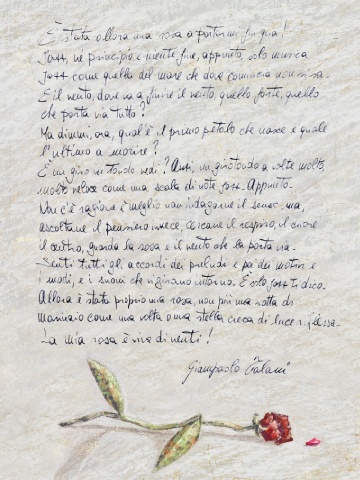 È stata allora una rosa a portarmi fin qua!
Jazz, né principio e niente fine, appunto, solo musica
Jazz come quella del mare che dove comincia non si sa.
E il vento, dove va a finire il vento, quello forte, quello
che porta via tutto?
Ma dimmi, ora, qual'è il primo petalo che nasce e quale
l'ultimo a morire?
È un giro in tondo vedi? Anzi, un girotondo a volte molto
molto veloce come una scala di note jazz. Appunto.
Non c'è ragione è meglio non indagarne il senso, ma,
ascoltane il pensiero invece, cercane il respiro, il cuore
il centro, guarda la rosa e il vento che la porta via.
Senti tutti gli accordi dei preludi e poi dei motivi e
i modi, e i suoni che rigirano intorno. È solo jazz ti dico.
Allora è stata proprio una rosa, non più una notte di
marinaio come una volta o una stella cieca di luce riflessa.
La mia rosa è viva di venti!
Giampaolo Talani